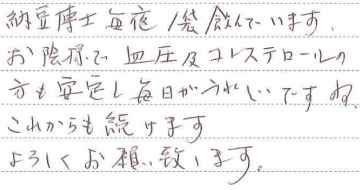 納豆博士毎夜1袋飲んでいます。
お陰様で血圧及コレステロールの
方も安定し毎日がうれしいですね。
これからも続けます
よろしくお願い致します。